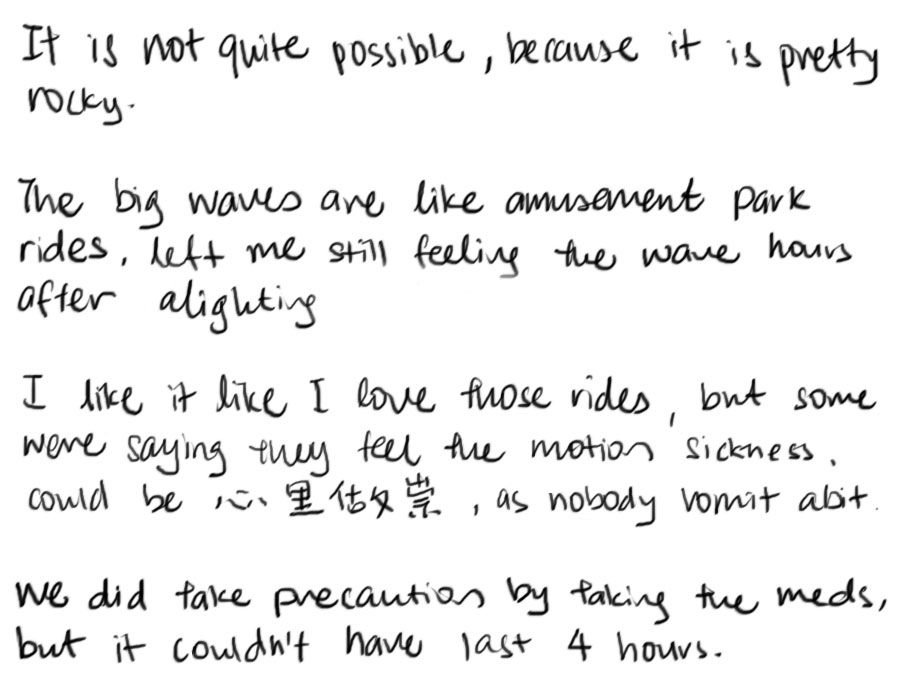 It is not quite possible, because it is pretty
rocky.
The big waves are like amusement park
rides, left me still feeling the wave hours
after alighting
I like it like I love those rides, but some
were saying they feel the motion sickness,
could be 心里估女崇, as nobody vomit abit.
We did take precaution by taking the meds,
but it couldn't have last 4 hours.